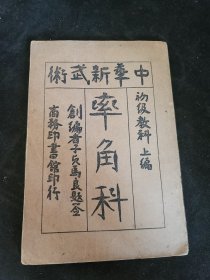 中華新武術
初級教科 上編
率角科
創編者子貞馬良懸公
商務印書館印行